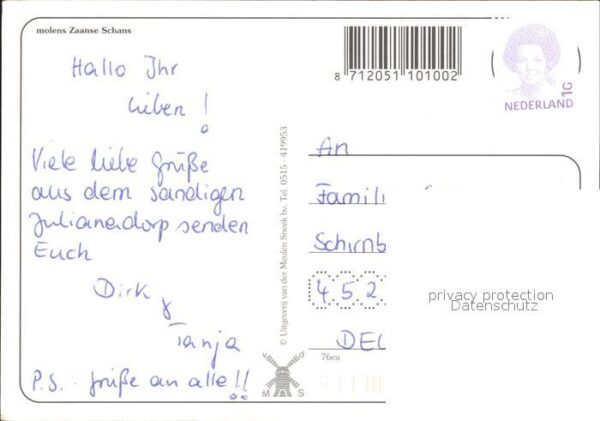 molens Zaanse Schans
Hallo Ihr
lieben!
Viele liebe Grüße
aus dem sandigen
Julianadorp senden
Euch
Dirk
&
Tanja
P.S. Grüße an alle!!
8 712051 101002
NEDERLAND
1G
© Uitgeverij van der Meulen Sneek bv. Tel. 0515 - 419953
An
Famili
Schirnb
452
DEU
76ea
M S
privacy protection
Datenschutz